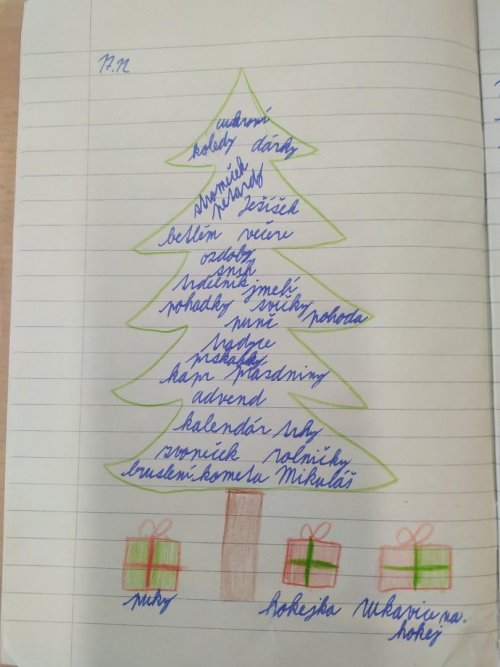 17.12
cukroví
koledy dárky
stromeček
petardy
Ježíšek
betlém večere
ozdoby
sníh
trdelník
jmelí
pohadky svíčky
punč pohoda
tradyce
prskavky
kapr prázdniny
advend
kalendár trhy
zvoneček rolničky
bruslení kometa Mikuláš
puky hokejka rukavice na
hokej